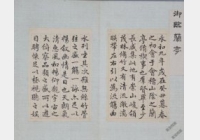 御臨蘭亭
永和九年歲在癸丑暮春
之初會于會稽山陰之蘭
亭脩禊事也羣賢畢至少
長咸集此地有崇山峻領
茂林脩竹又有清流激湍
暎帶左右引以為流觴曲
水列坐其次雖無絲竹管
弦之盛一觴一詠亦足以
暢敘幽情是日也天朗氣
清惠風和暢仰觀宇宙之
大俯察品類之盛所以遊
目騁懷足以極視聽之娛